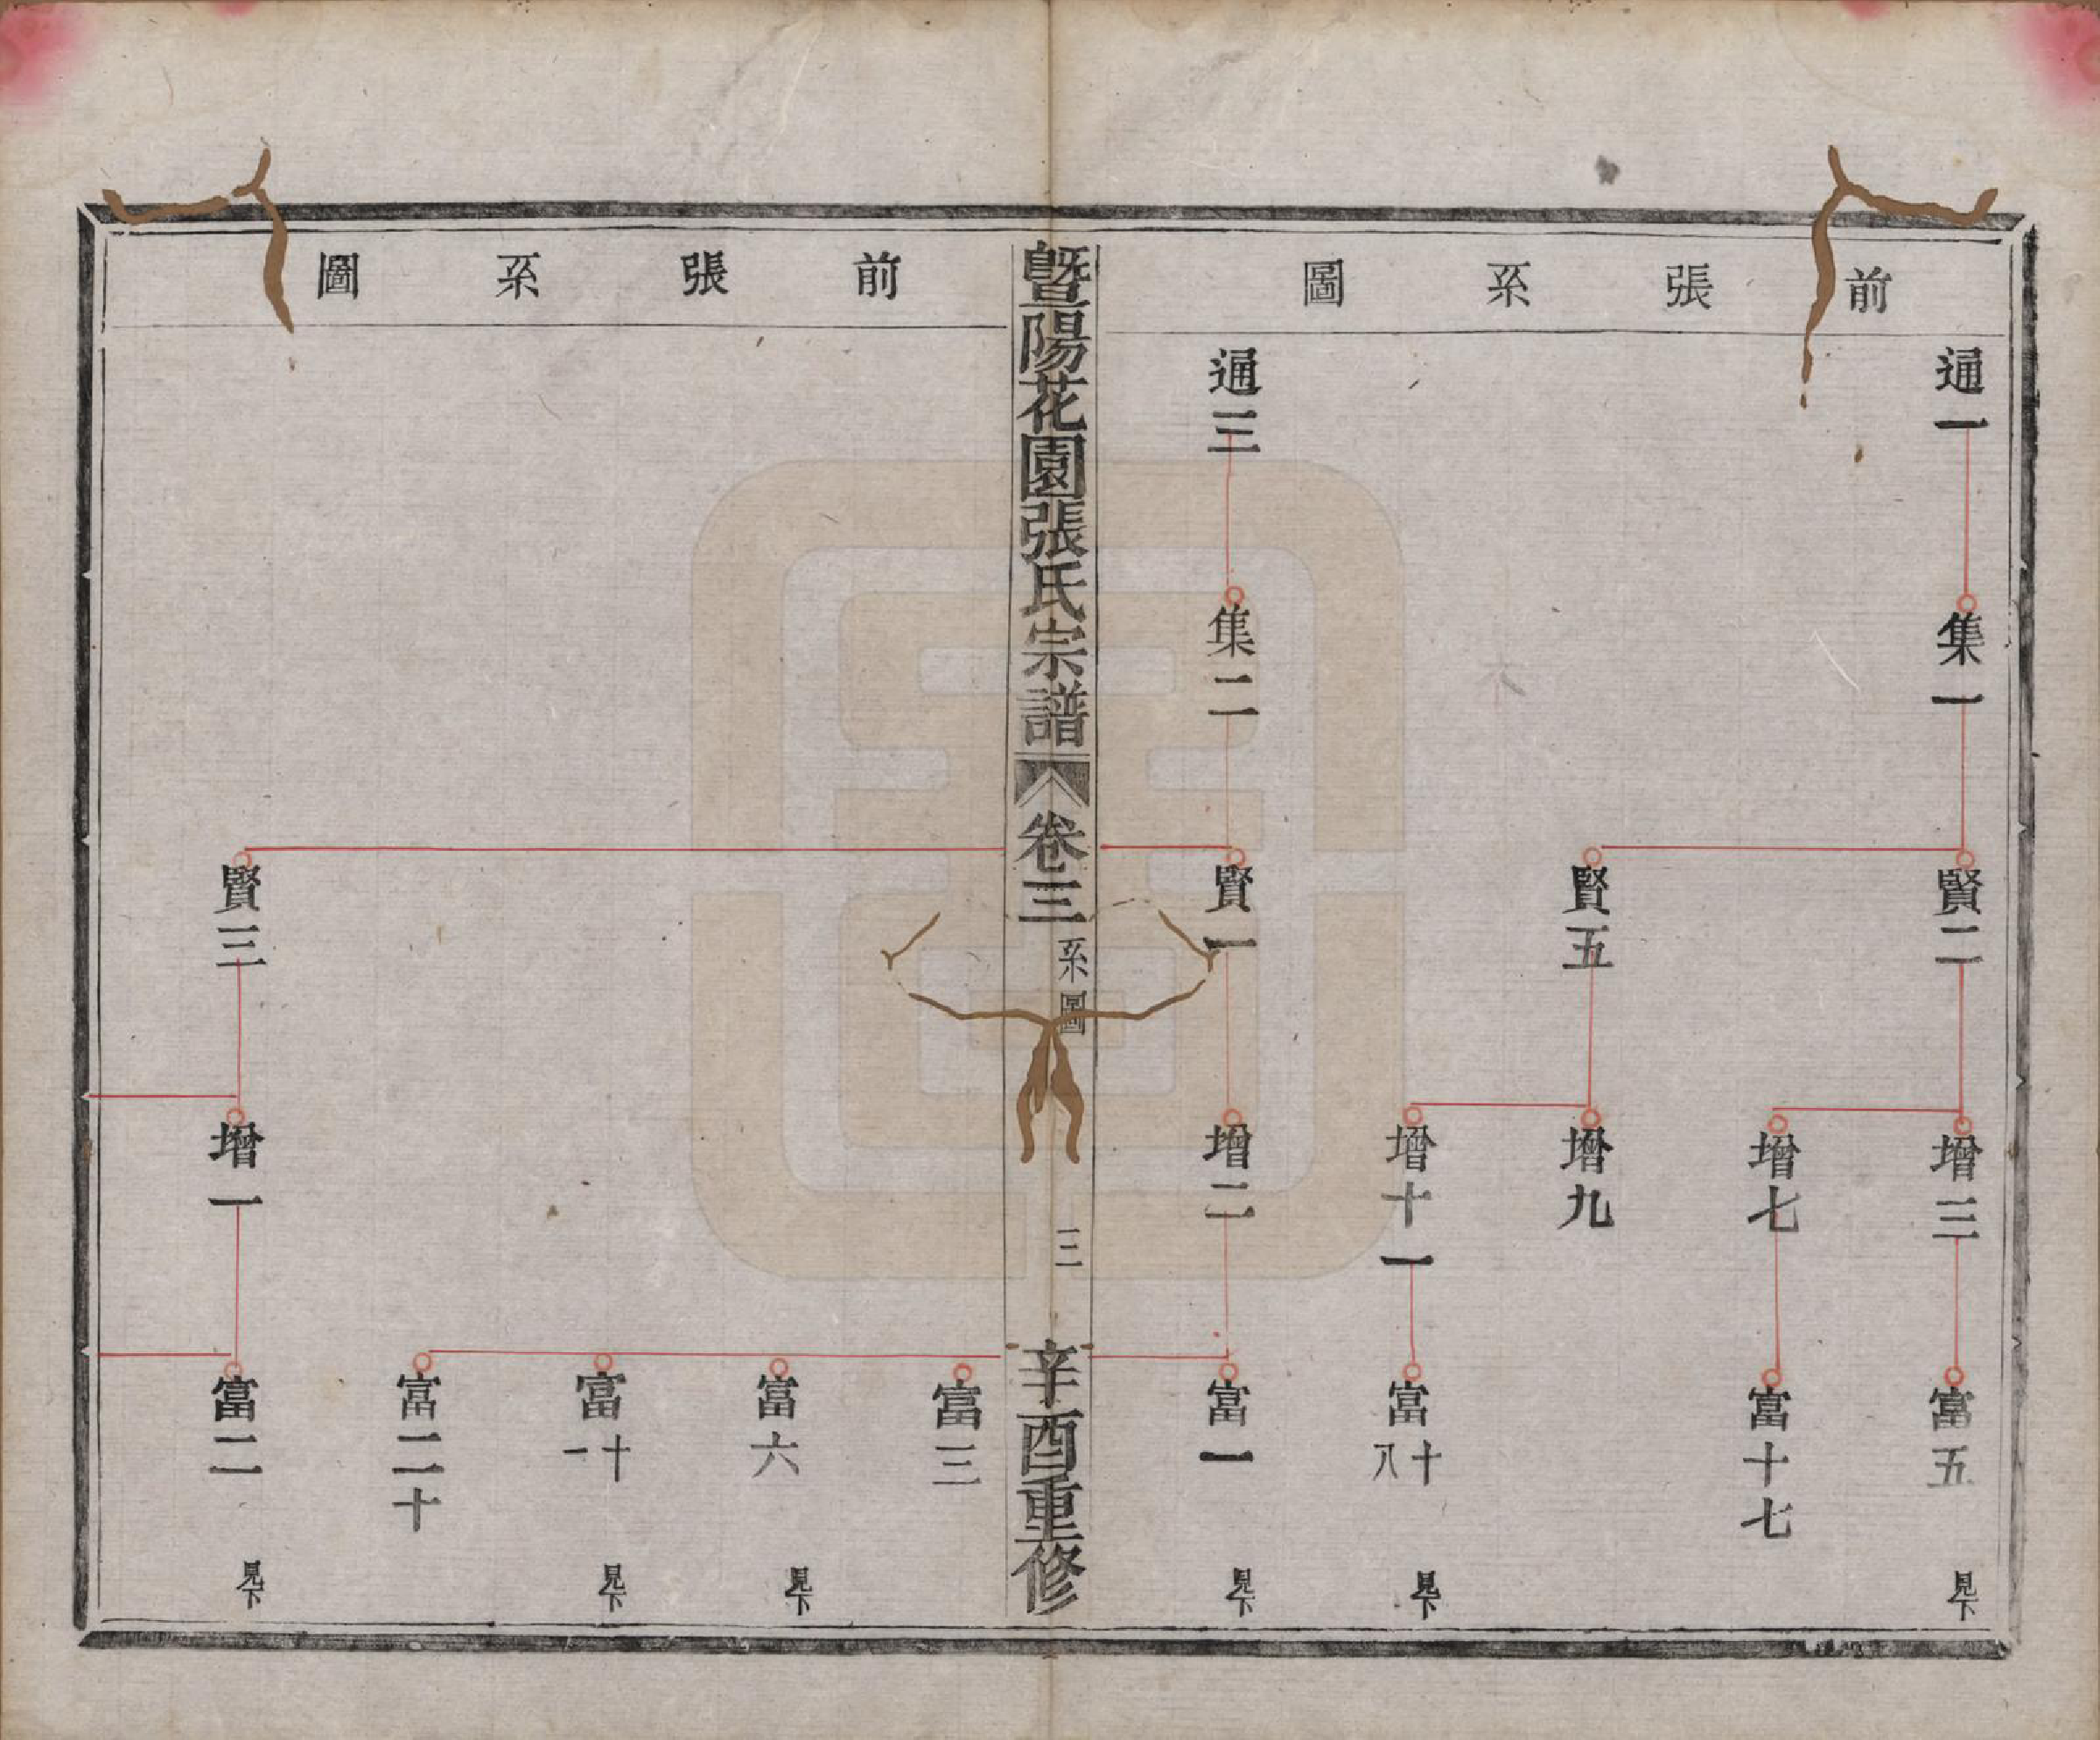 前張系圖
通一
集一
賢二
增三
富五
見下
增七
富十七
賢五
增九
增十一
富十八
見下
通三
集二
賢一
增二
富一
見下
暨陽花園張氏宗譜
卷三
系圖
三
辛酉重修
前張系圖
富三
富六
見下
富十一
見下
富二十
賢三
增一
富二
見下